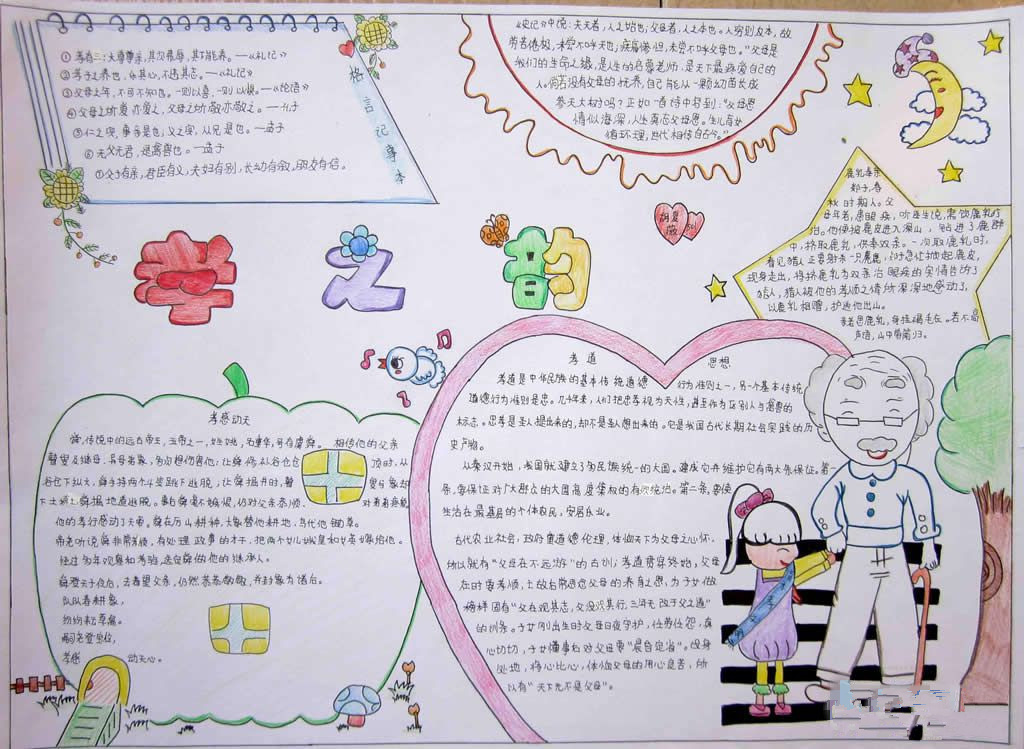 ①孝有三:大尊尊亲,其次弗辱,其下能养。——《礼记》
②孝子之养也,乐其心,不违其志。——《礼记》
③父母之年,不可不知也。一则以喜,一则以惧。——《论语》
④父母之所爱亦爱之,父母之所敬亦敬之。——孔子
⑤仁之实,事亲是也;义之实,从兄是也。——孟子
⑥无父无君,是禽兽也。——孟子
⑦父子有亲,君臣有义,夫妇有别,长幼有叙,朋友有信。
格言记事本
《史记》中说:夫天者,人之始也;父母者,人之本也。人穷则反本,故
劳苦倦极,未尝不呼天也;疾痛惨怛,未尝不呼父母也。"父母是
我们的生命之源,是人生的启蒙老师,是天下最疼爱自己的
人。倘若没有父母的抚养,自己能从一颗幼苗长成
参天大树吗?正如一首诗中写到:"父母恩
情似海深,人生莫忘父母恩。生儿育女
循环理,世代相传自古今。"
鹿乳奉亲
郯子,春
秋时期人。父
母年老,患眼疾,
他便披鹿皮进入深山,钻进了鹿群
中,挤取鹿乳,供奉双亲。一次取鹿乳时,
看见猎人正要射杀一只麂鹿,郯子急忙掀起鹿皮,
现身走出,将挤鹿乳为双亲治眼疾的实情告诉了
猎人,猎人被他的孝顺之情所深深地感动了,
以鹿乳相赠,护送他出山。
亲老思鹿乳,身挂褐毛衣。若不高
声语,山中带箭归。
孝之韵
孝感动天
舜,传说中的远古帝王,五帝之一,姓姚,名重华,号有虞氏。相传他的父亲
瞽叟及继母、异母弟象,多次想伤害他:让舜修补谷仓仓顶时,从
谷仓下纵火,舜手持两个斗笠跳下逃脱;让舜掘井时,瞽叟与象却
下土填井,舜掘地道逃脱。事后舜毫不嫉恨,仍对父亲恭顺
他的孝行感动了天帝。舜在历山耕种,大象替他耕地,鸟代他锄草。
帝尧听说舜非常孝顺,有处理政事的才干,把两个女儿娥皇和女英嫁给他。
经过多年观察和考验,选定舜做他的继承人。
舜登天子位后,去看望父亲,仍然恭恭敬敬,并封象为诸侯。
队队春耕象,
纷纷耘草禽。
嗣尧登宝位,
孝感动天心。
孝道思想
孝道是中华民族的基本传统道德行为准则之一,另一个基本传统
道德行为准则是忠。几千年来,人们把忠孝视为天性,甚至作为区别人与禽兽的
标志。忠孝是圣人提出来的,却不是圣人想出来的。它是我国古代长期社会实践的历
史产物。
从秦汉开始,我国就建立了多民族统一的大国。建成它并维护它有两大条保证。第一
条,要保证对广大群众的大国高度集权的有效统治。第二条,要使
生活在最基层的个体农民,安居乐业。
古代农业社会,政府重道德伦理,体恤天下为父母之心怀.
所以就有"父母在不远游"的古训;孝道贯穿终始,父母
在时要孝顺,亡故后常追念父母的养育之恩,为子女做
榜样固有"父在观其志,父没观其行,三年无改于父之道"
的训条。子女刚出生时父母日夜守护,任劳任怨,真
心切切,子女懂事后对父母要"晨昏定省"。设身
处地,将心比心,体恤父母的用心良苦,所
以有"天下无不是父母"。